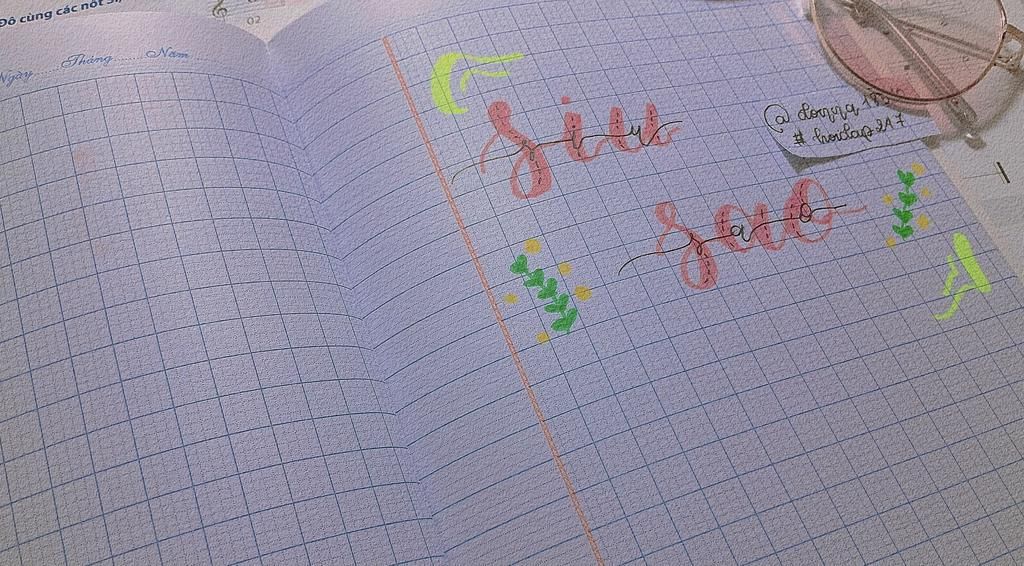 Đô cùng các nốt
02
Ngày ...... Tháng ...... Năm
siu
sao
# hoidap247